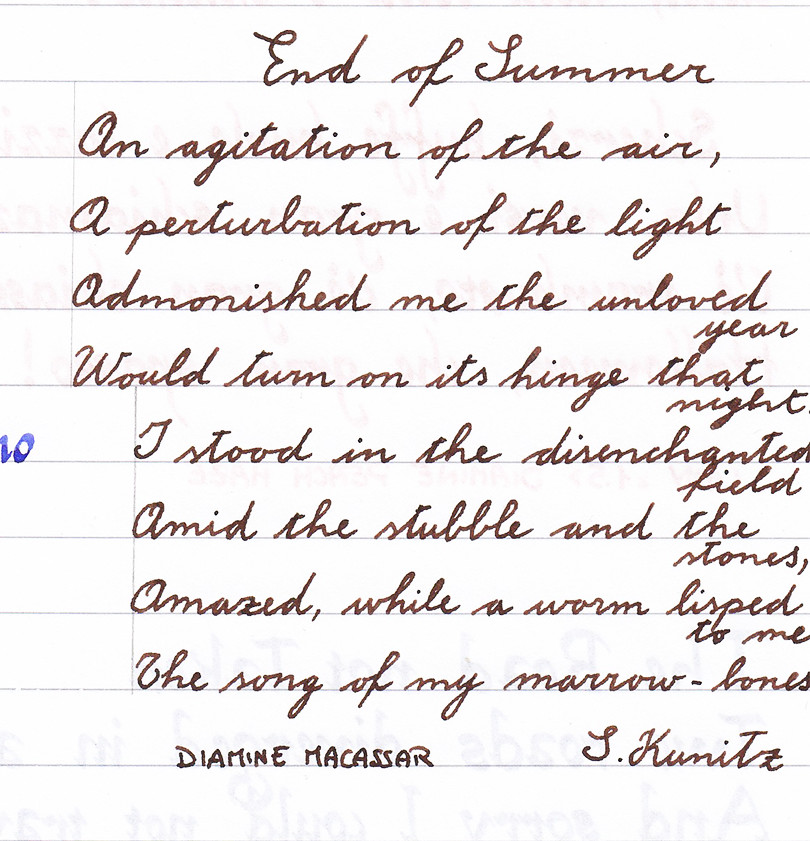 End of Summer
An agitation of the air,
A perturbation of the light
Admonished me the unloved
year
Would turn on its hinge that
night.
I stood in the disenchanted
field
Amid the stubble and the
stones,
Amazed, while a worm lisped
to me
The song of my marrow-bones
DIAMINE MACASSAR
S. Kunitz